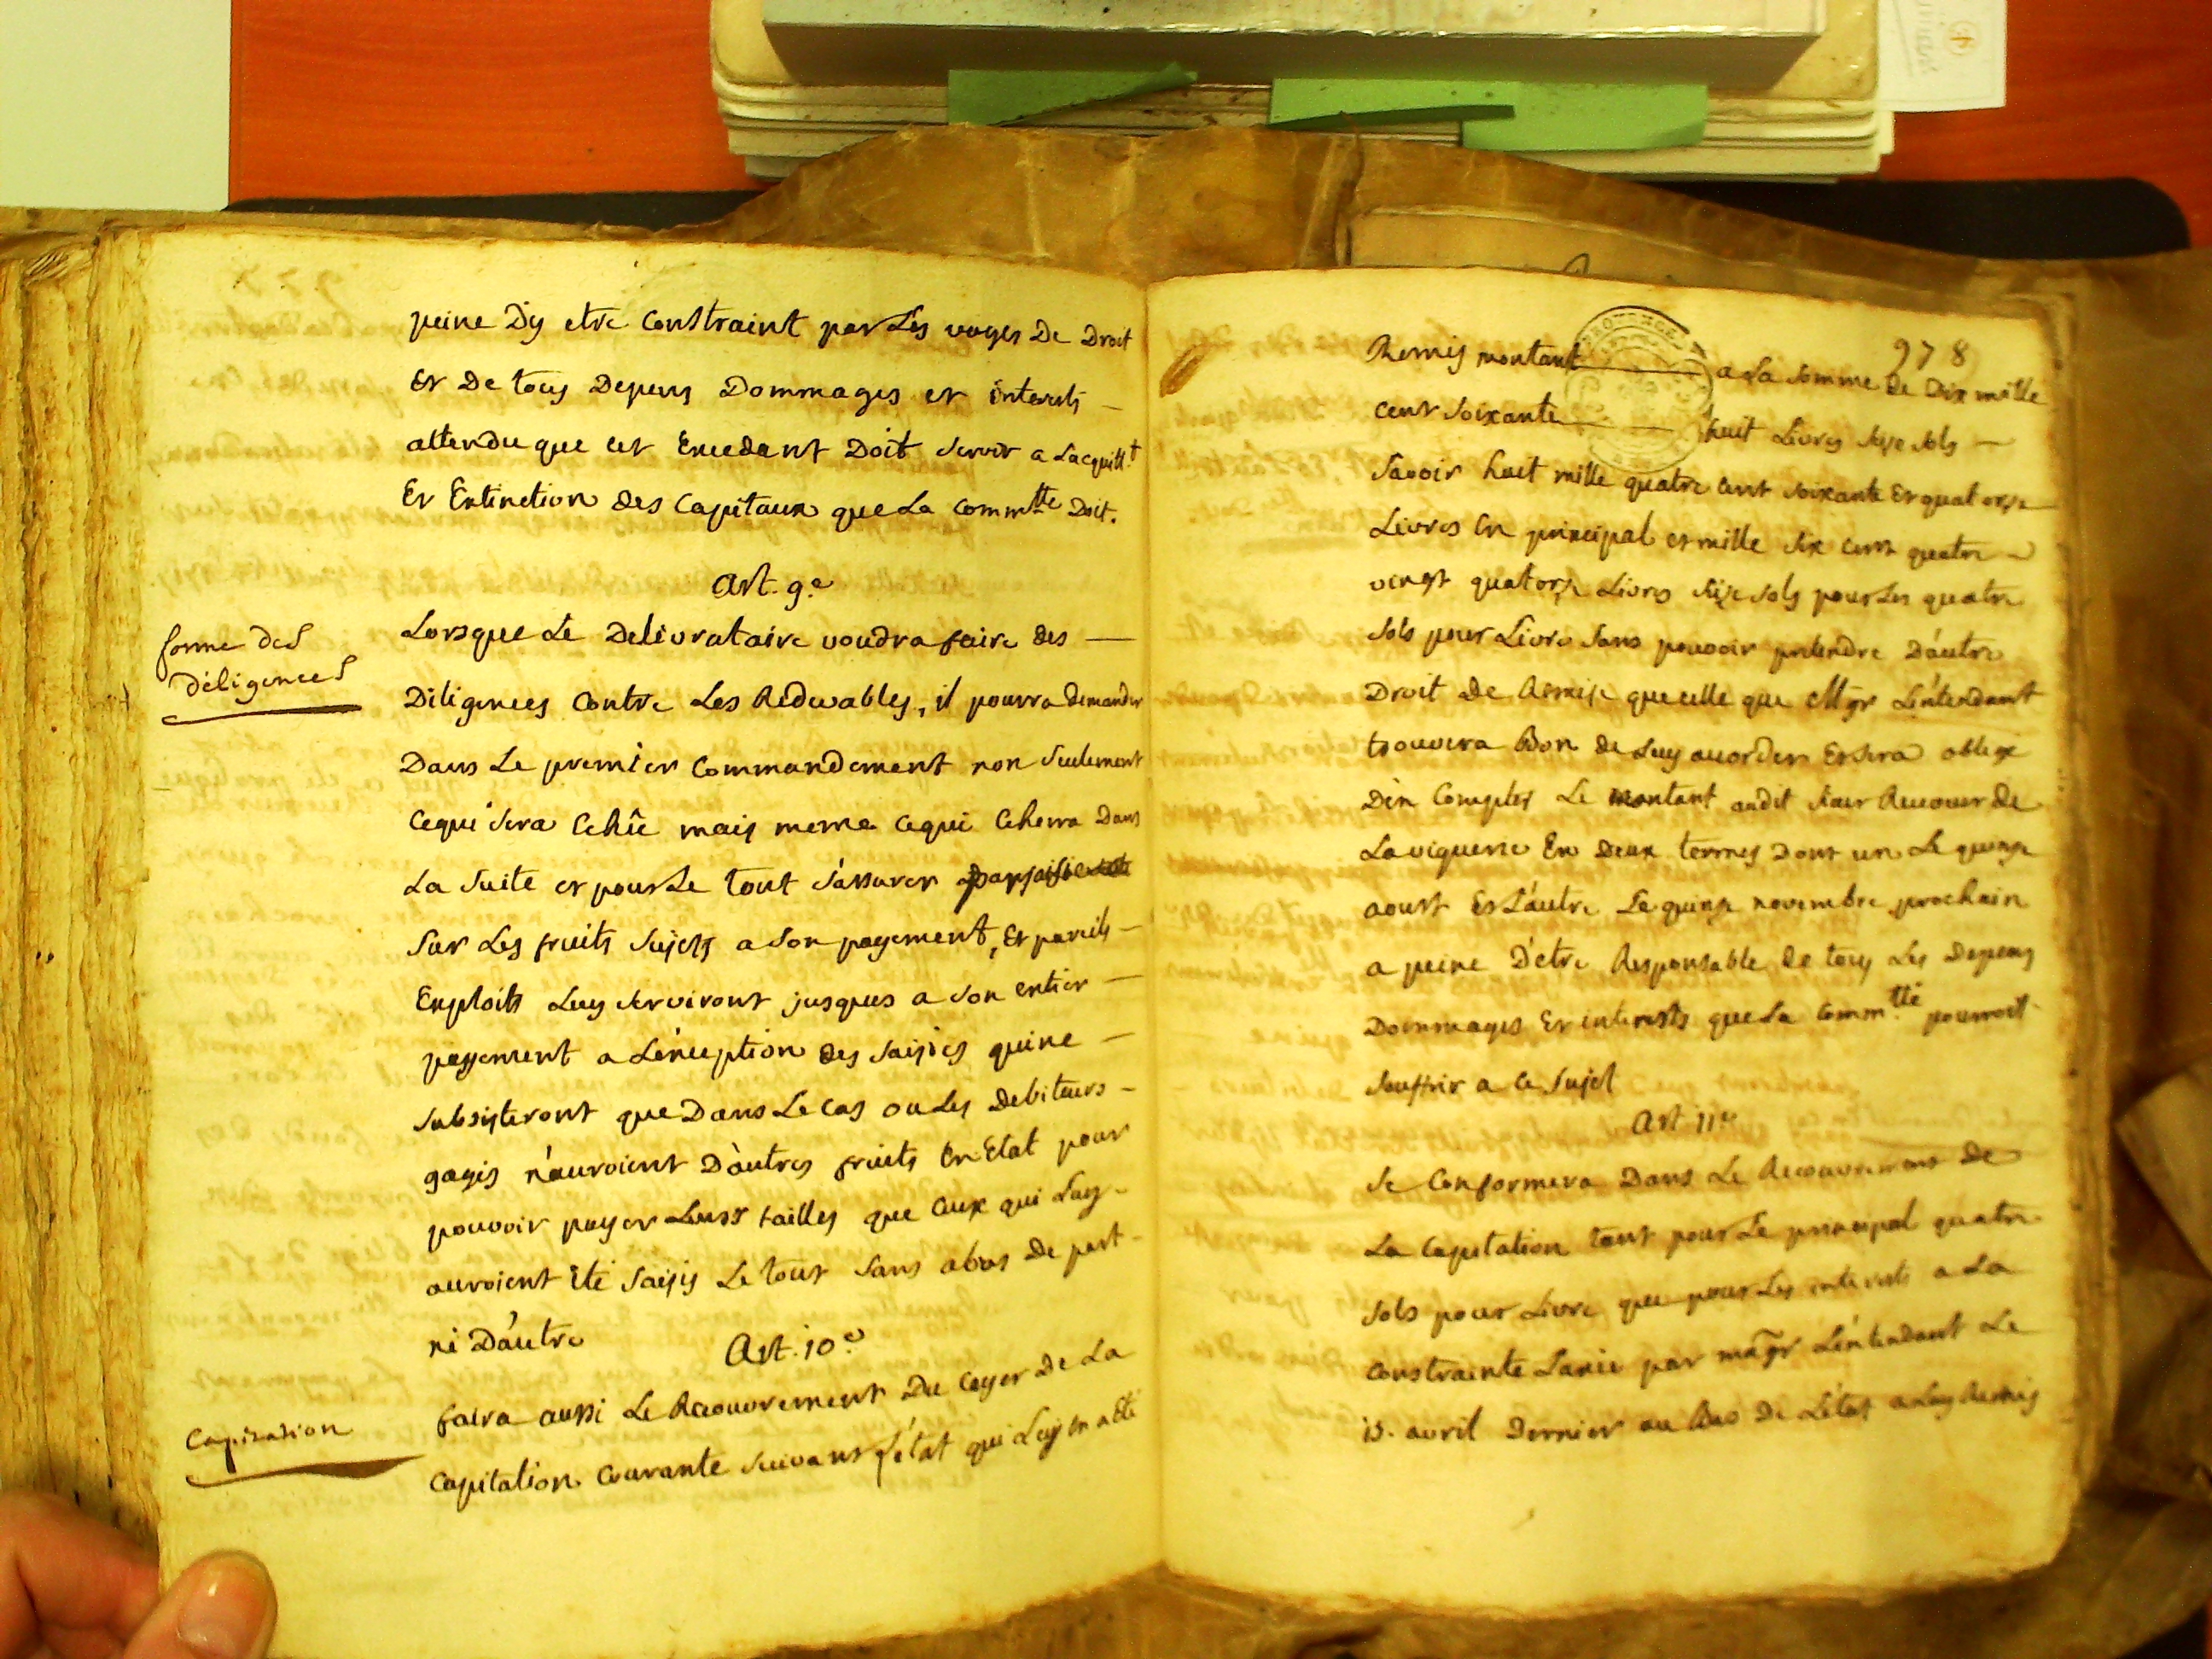 peine D'y etre Constraint par Les voyes De Droit
Et De tous Depens Dommages et interests
attendu que cet Excedant Doit Servir a Lacquitt.t
Et Extinction des Capitaux que La Commtté Doit.
Art. 9.e
forme deS
Déligences
Lorsque Le Delivrataire voudra faire des
Diligences Contre Les Redevables, il pourra demander
Dans Le premier Commandement non Seulement
Cequi Sera Echû mais meme cequi Echerra Dans
La Suite et pour Le tout S'assurer
Sur Les fruits Sujets a Son payement, Et pareils
Exploits Luy Serviront jusques a Son entier
payement a L'exception des Saisies qui ne
Subsisteront que Dans Le Cas ou Les Debiteurs
gagés n'auroient D'autres fruits En Etat pour
pouvoir payer Leurs tailles que Ceux qui Luy
auroient été Saisis Le tout Sans abus de part
ni D'autre
Art. 10.e
Capitation
faira aussi Le Recouvrement Du Cayer De La
Capitation Courante Suivant L'état qui Luy en a été
978
Remis montant a La Somme De Dix mille
cent Soixante huit Livres Seize Sols
Savoir huit mille quatre cent Soixante Et quatorze
Livres En principal et mille Six cent quatre
vingt quatorze Livres Seize Sols pour Les quatre
Sols pour Livre Sans pouvoir pretendre D'autre
Droit de Remise que celle que Mgr L'intendant
trouvera Bon de Luy accorder Et Sera obligé
D'en Compter Le montant audit Sieur Receveur de
La viguerie En Deux termes Dont un Le quinze
aoust Et L'autre Le quinze novembre prochain
a peine D'etre Responsable de tous Les Depens
Dommages Et interests que La Comm.tté pourroit
Souffrir a Ce Sujet
Art. 11.e
Se Conformera Dans Le Recouvrement de
La Capitation tant pour Le principal quatre
Sols pour Livre que pour Les interests a La
Constrainte Lancée par Mgr L'intendant Le
15. avril Dernier au Bas De L'état a Luy Remis